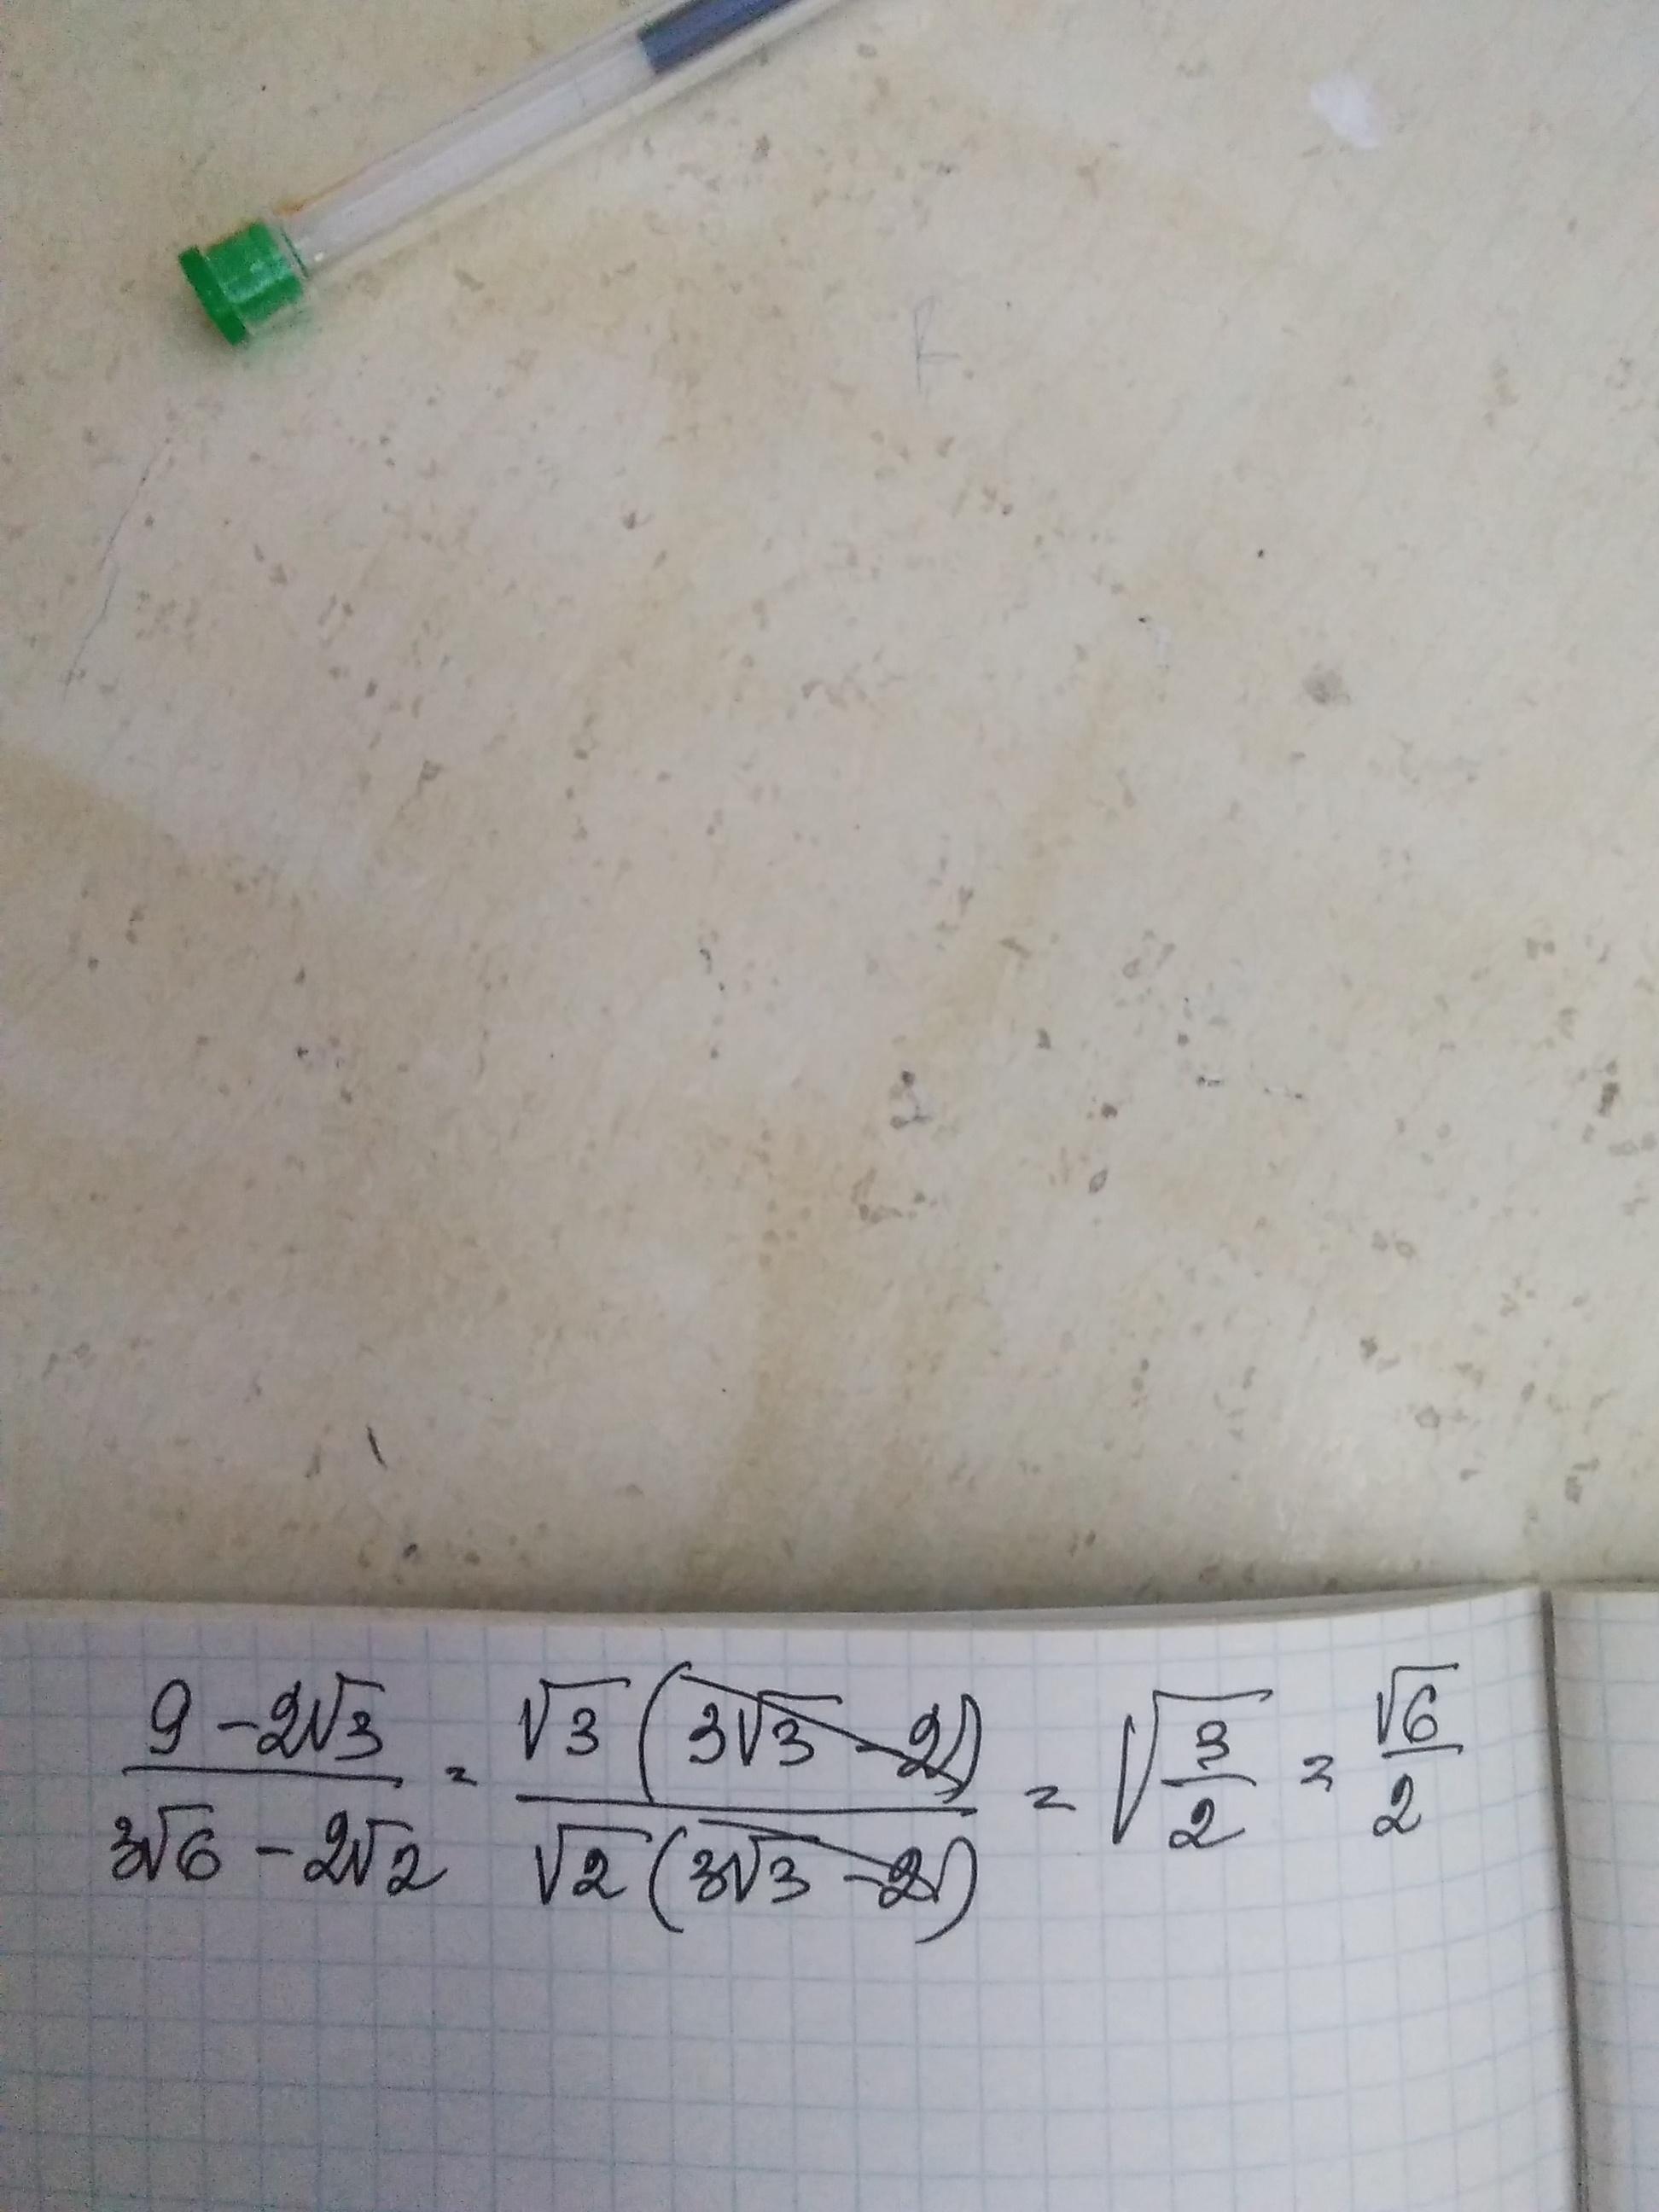 (9 - 2√3)/(3√6 - 2√2) = (√3(3√3 - 2))/(√2(3√3 - 2)) = √(3/2) = √6/2